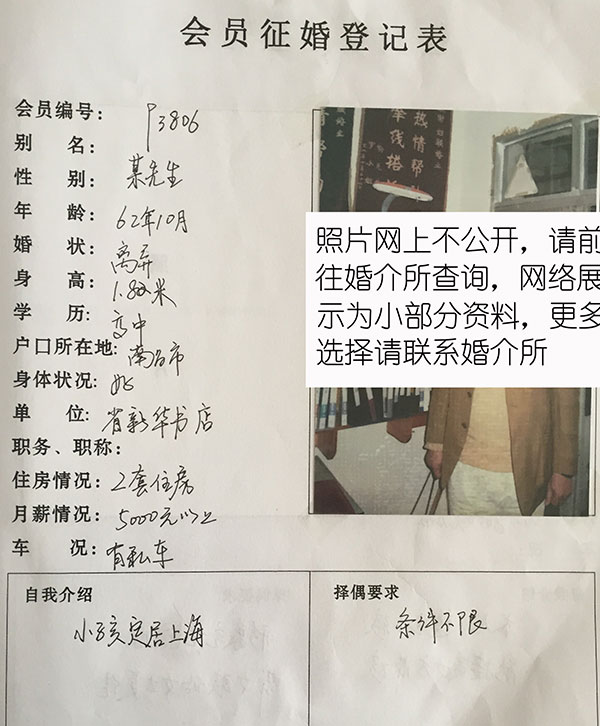 会员征婚登记表
会员编号: P3806
别 名:
性 别: 某先生
年 龄: 62年10月
婚 状: 离异
身 高: 1.80米
学 历: 高中
户口所在地: 南昌市
身体状况: 好
单 位: 省新华书店
职务、职称:
住房情况: 2套住房
月薪情况: 5000元以上
车 况: 有私车
热情帮
牵线搭
照片网上不公开，请前
往婚介所查询，网络展
示为小部分资料，更多
选择请联系婚介所
自我介绍
小孩定居上海
择偶要求
条件不限